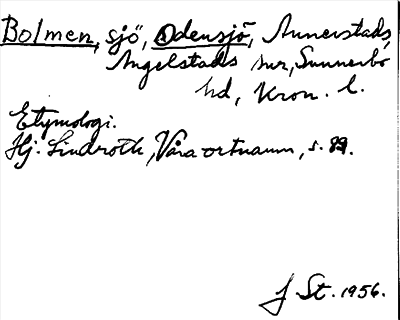 Bolmen, sjö, Odensjö, Annerstads,
Angelstads snr, Sunnerbo
hd, Kron. l.
Etymologi.
Hj. Lindroth, Våra ortnamn, s. 99.
J St. 1956.